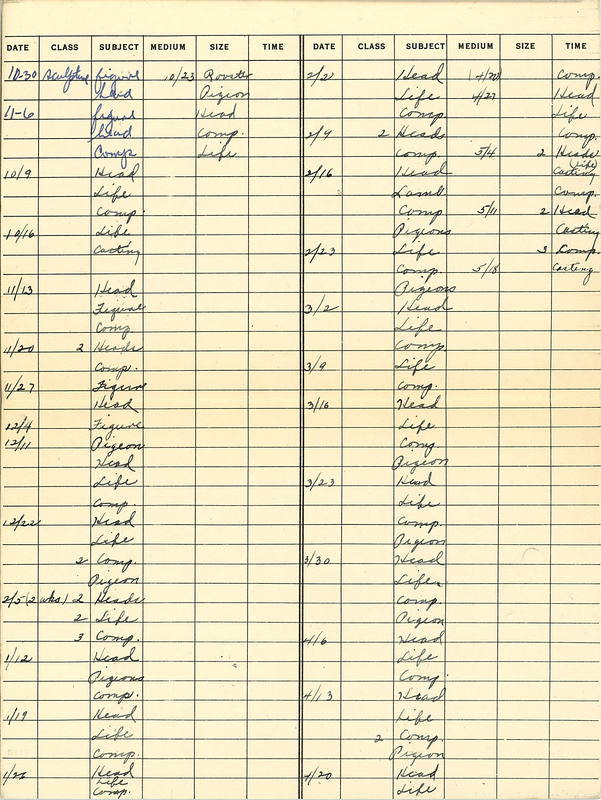 DATE CLASS SUBJECT MEDIUM SIZE TIME
10-30 Sculpture figure 10/23 Rooster
head Pigeon
11-6 figure Head
head Comp.
Comp Life
10/9 Head
Life
Comp.
10/16 Life
Casting
11/13 Head
Figure
Comp
11/20 2 Heads
Comp.
11/27 Figure
Head
12/4 Figure
12/11 Pigeon
Head
Life
Comp.
12/22 Head
Life
2 Comp.
Pigeon
2/5 (2 wks) 2 Heads
2 Life
3 Comp.
1/12 Head
Pigeons
Comp.
1/19 Head
Life
Comp.
1/26 Head
Life
Comp.
DATE CLASS SUBJECT MEDIUM SIZE TIME
2/2 Head 4/20 Comp.
Life 4/27 Head
Comp. Life
2/9 2 Heads Comp.
Comp. 5/4 2 Heads
(Life)
2/16 Head Casting
Lamb Comp.
Comp 5/11 2 Head
Pigeons Casting
2/23 Life 3 Comp.
Comp. 5/18 Casting
Pigeons
3/2 Head
Life
Comp.
3/9 Life
Comp.
3/16 Head
Life
Comp
Pigeon
3/23 Head
Life
Comp.
Pigeon
3/30 Head
Life
Comp.
Pigeon
4/6 Head
Life
Comp.
4/13 Head
Life
2 Comp
Pigeon
4/20 Head
Life